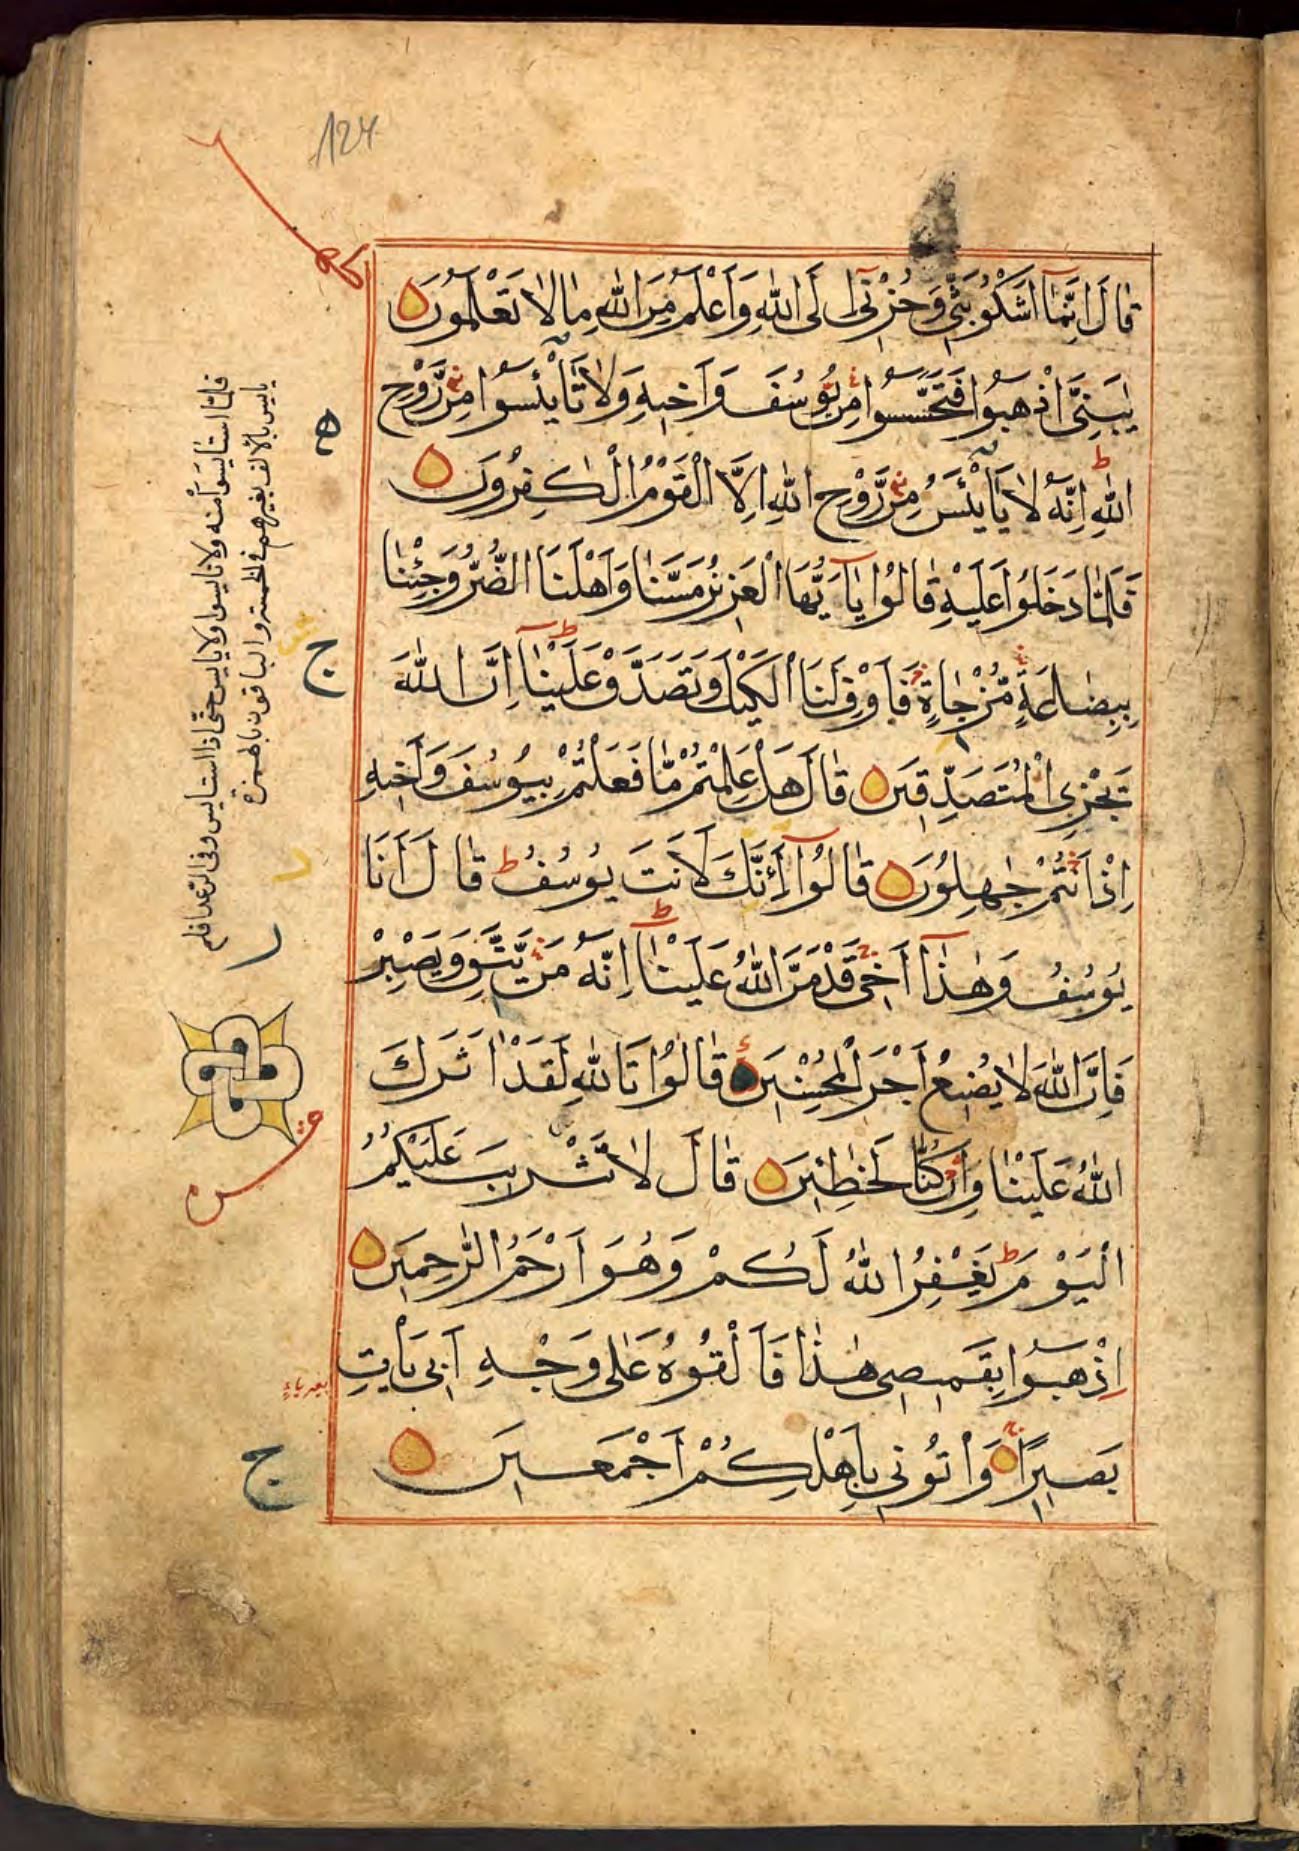 124
قَالَ اِنَّمَا اَشْكُوْ بَثِّي وَحُزْنِي اِلَى اللّٰهِ وَاَعْلَمُ مِنَ اللّٰهِ مَا لَا تَعْلَمُوْنَ
يٰبَنِيَّ اذْهَبُوْا فَتَحَسَّسُوْا مِنْ يُوْسُفَ وَاَخِيْهِ وَلَا تَايْئَسُوْا مِنْ رَّوْحِ
اللّٰهِ ط اِنَّهُ لَا يَايْئَسُ مِنْ رَّوْحِ اللّٰهِ اِلَّا الْقَوْمُ الْكٰفِرُوْنَ
فَلَمَّا دَخَلُوْا عَلَيْهِ قَالُوْا يَا اَيُّهَا الْعَزِيْزُ مَسَّنَا وَاَهْلَنَا الضُّرُّ وَجِئْنَا
بِبِضَاعَةٍ مُّزْجَاةٍ فَاَوْفِ لَنَا الْكَيْلَ وَتَصَدَّقْ عَلَيْنَا ط اِنَّ اللّٰهَ
يَجْزِي الْمُتَصَدِّقِيْنَ قَالَ هَلْ عَلِمْتُمْ مَّا فَعَلْتُمْ بِيُوْسُفَ وَاَخِيْهِ
اِذْ اَنْتُمْ جٰهِلُوْنَ قَالُوْا أَئِنَّكَ لَاَنْتَ يُوْسُفُ ط قَالَ اَنَا
يُوْسُفُ وَهٰذَا اَخِيْ قَدْ مَنَّ اللّٰهُ عَلَيْنَا ط اِنَّهُ مَنْ يَّتَّقِ وَيَصْبِرْ
فَاِنَّ اللّٰهَ لَا يُضِيْعُ اَجْرَ الْمُحْسِنِيْنَ قَالُوْا تَاللّٰهِ لَقَدْ اٰثَرَكَ
اللّٰهُ عَلَيْنَا وَاِنْ كُنَّا لَخٰطِئِيْنَ قَالَ لَا تَثْرِيْبَ عَلَيْكُمُ
الْيَوْمَ ط يَغْفِرُ اللّٰهُ لَكُمْ وَهُوَ اَرْحَمُ الرّٰحِمِيْنَ
اِذْهَبُوْا بِقَمِيْصِي هٰذَا فَاَلْقُوْهُ عَلٰى وَجْهِ اَبِي يَأْتِ
بَصِيْرًا وَأْتُوْنِي بِاَهْلِكُمْ اَجْمَعِيْنَ
فلما استايسوا منه ولا تايسوا ولا يايس حتى اذا استايس وفى الرعد افلم
يايس بالالف بغير همز فى الخمسة والباقون بالهمزة
ج
ج